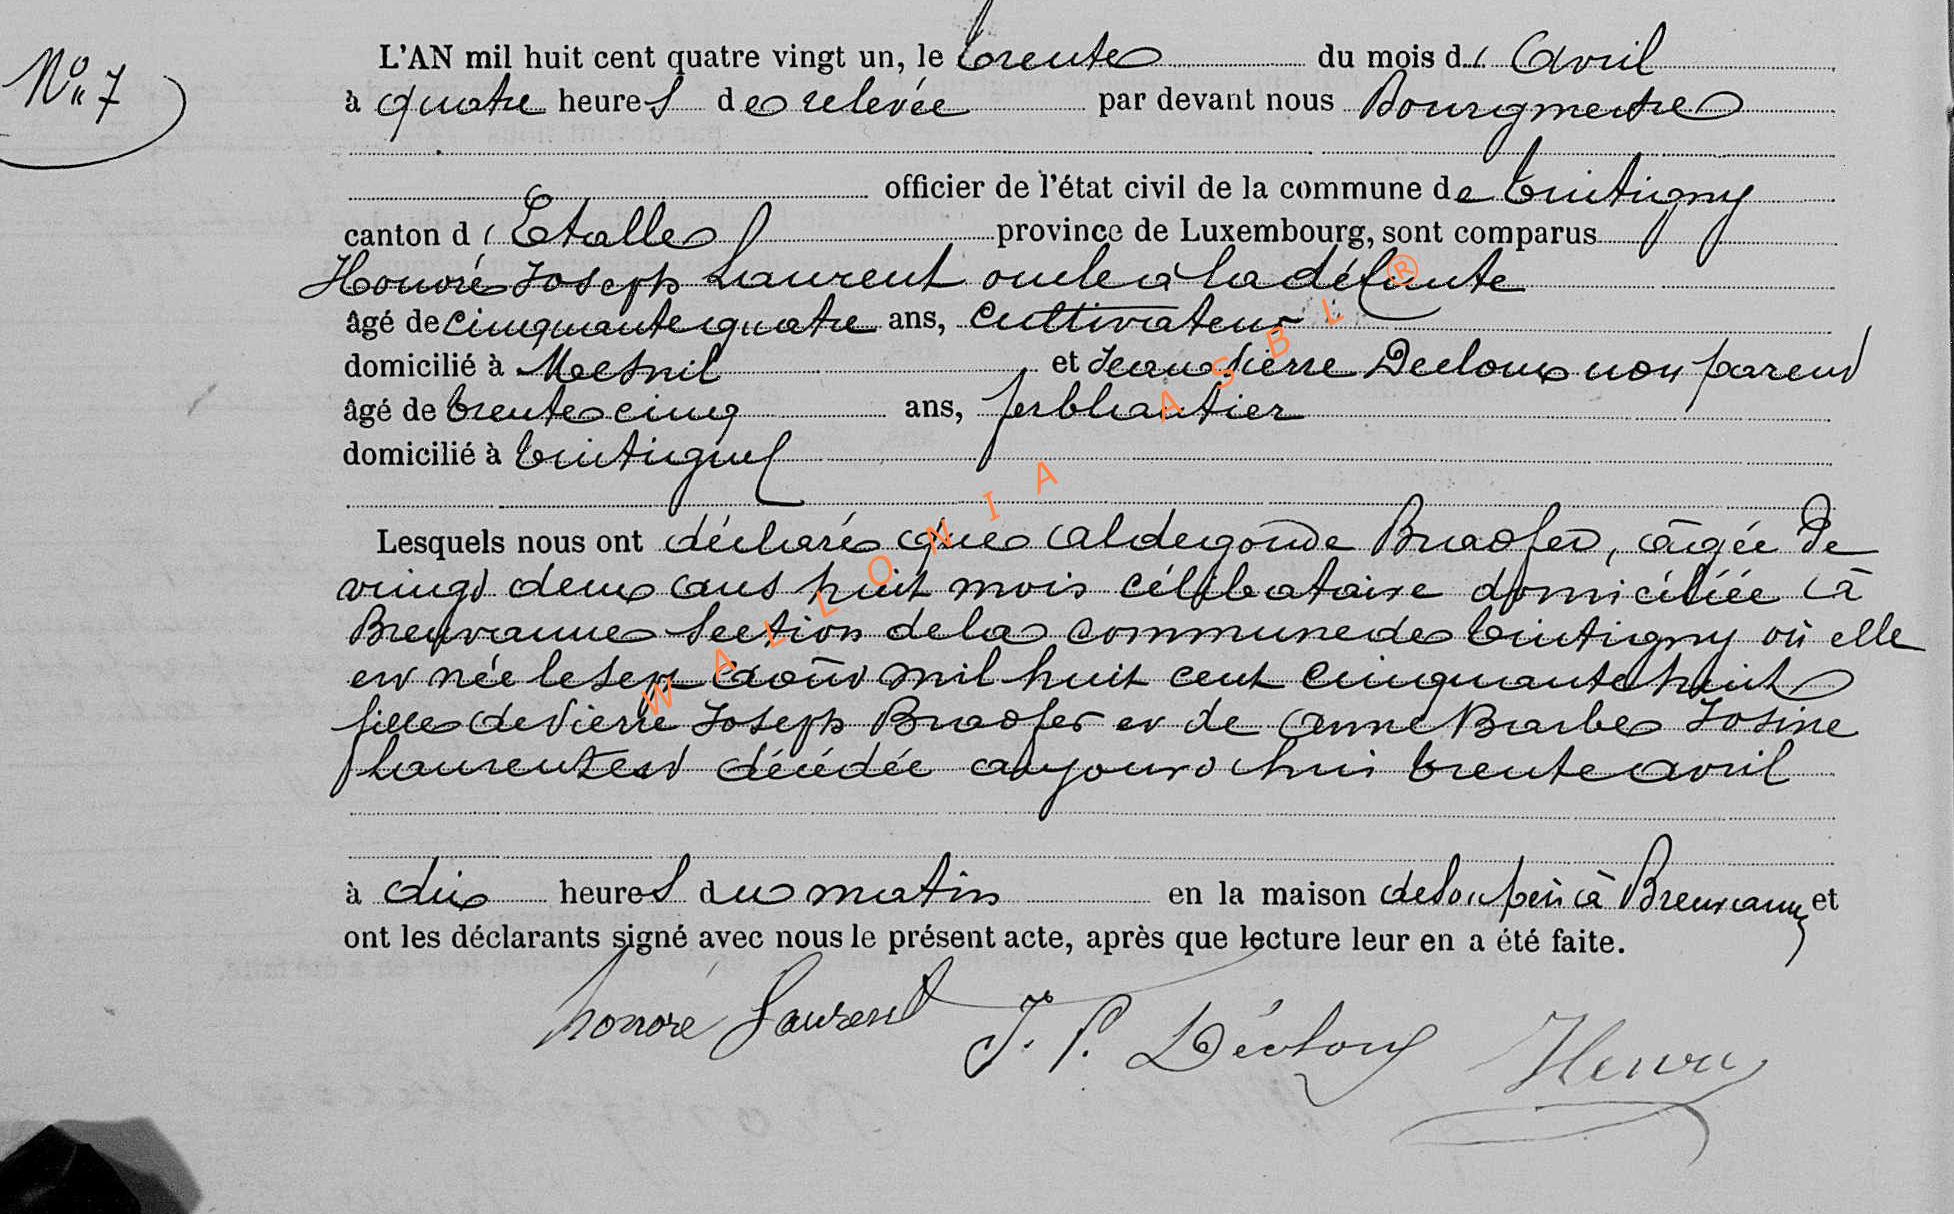 L'AN mil huit cent quatre vingt un, le trente du mois d' Avril
N° 7
à quatre heures de relevée par devant nous Bourgmestre
officier de l'état civil de la commune de Tintigny
canton d' Etalle province de Luxembourg, sont comparus
Honoré Joseph Laurent oncle à la défunte
âgé de cinquante quatre ans, cultivateur
domicilié à Mesnil et Jean Pierre Decloux non parent
âgé de trente cinq ans, ferblantier
domicilié à Tintigny
Lesquels nous ont déclaré que Aldegonde Bradfer, âgée de
vingt deux ans huit mois célibataire domiciliée à
Breuvanne Section de la commune de Tintigny où elle
est née le sept août mil huit cent cinquante huit
fille de Pierre Joseph Bradfer et de Anne Barbe Josine
Laurent est décédée aujourd'hui trente avril
à dix heures du matin en la maison de son père à Breuvanne et
ont les déclarants signé avec nous le présent acte, après que lecture leur en a été faite.
honoré Laurent J. P. Décloux Henry
WALLONIA ASBL ®